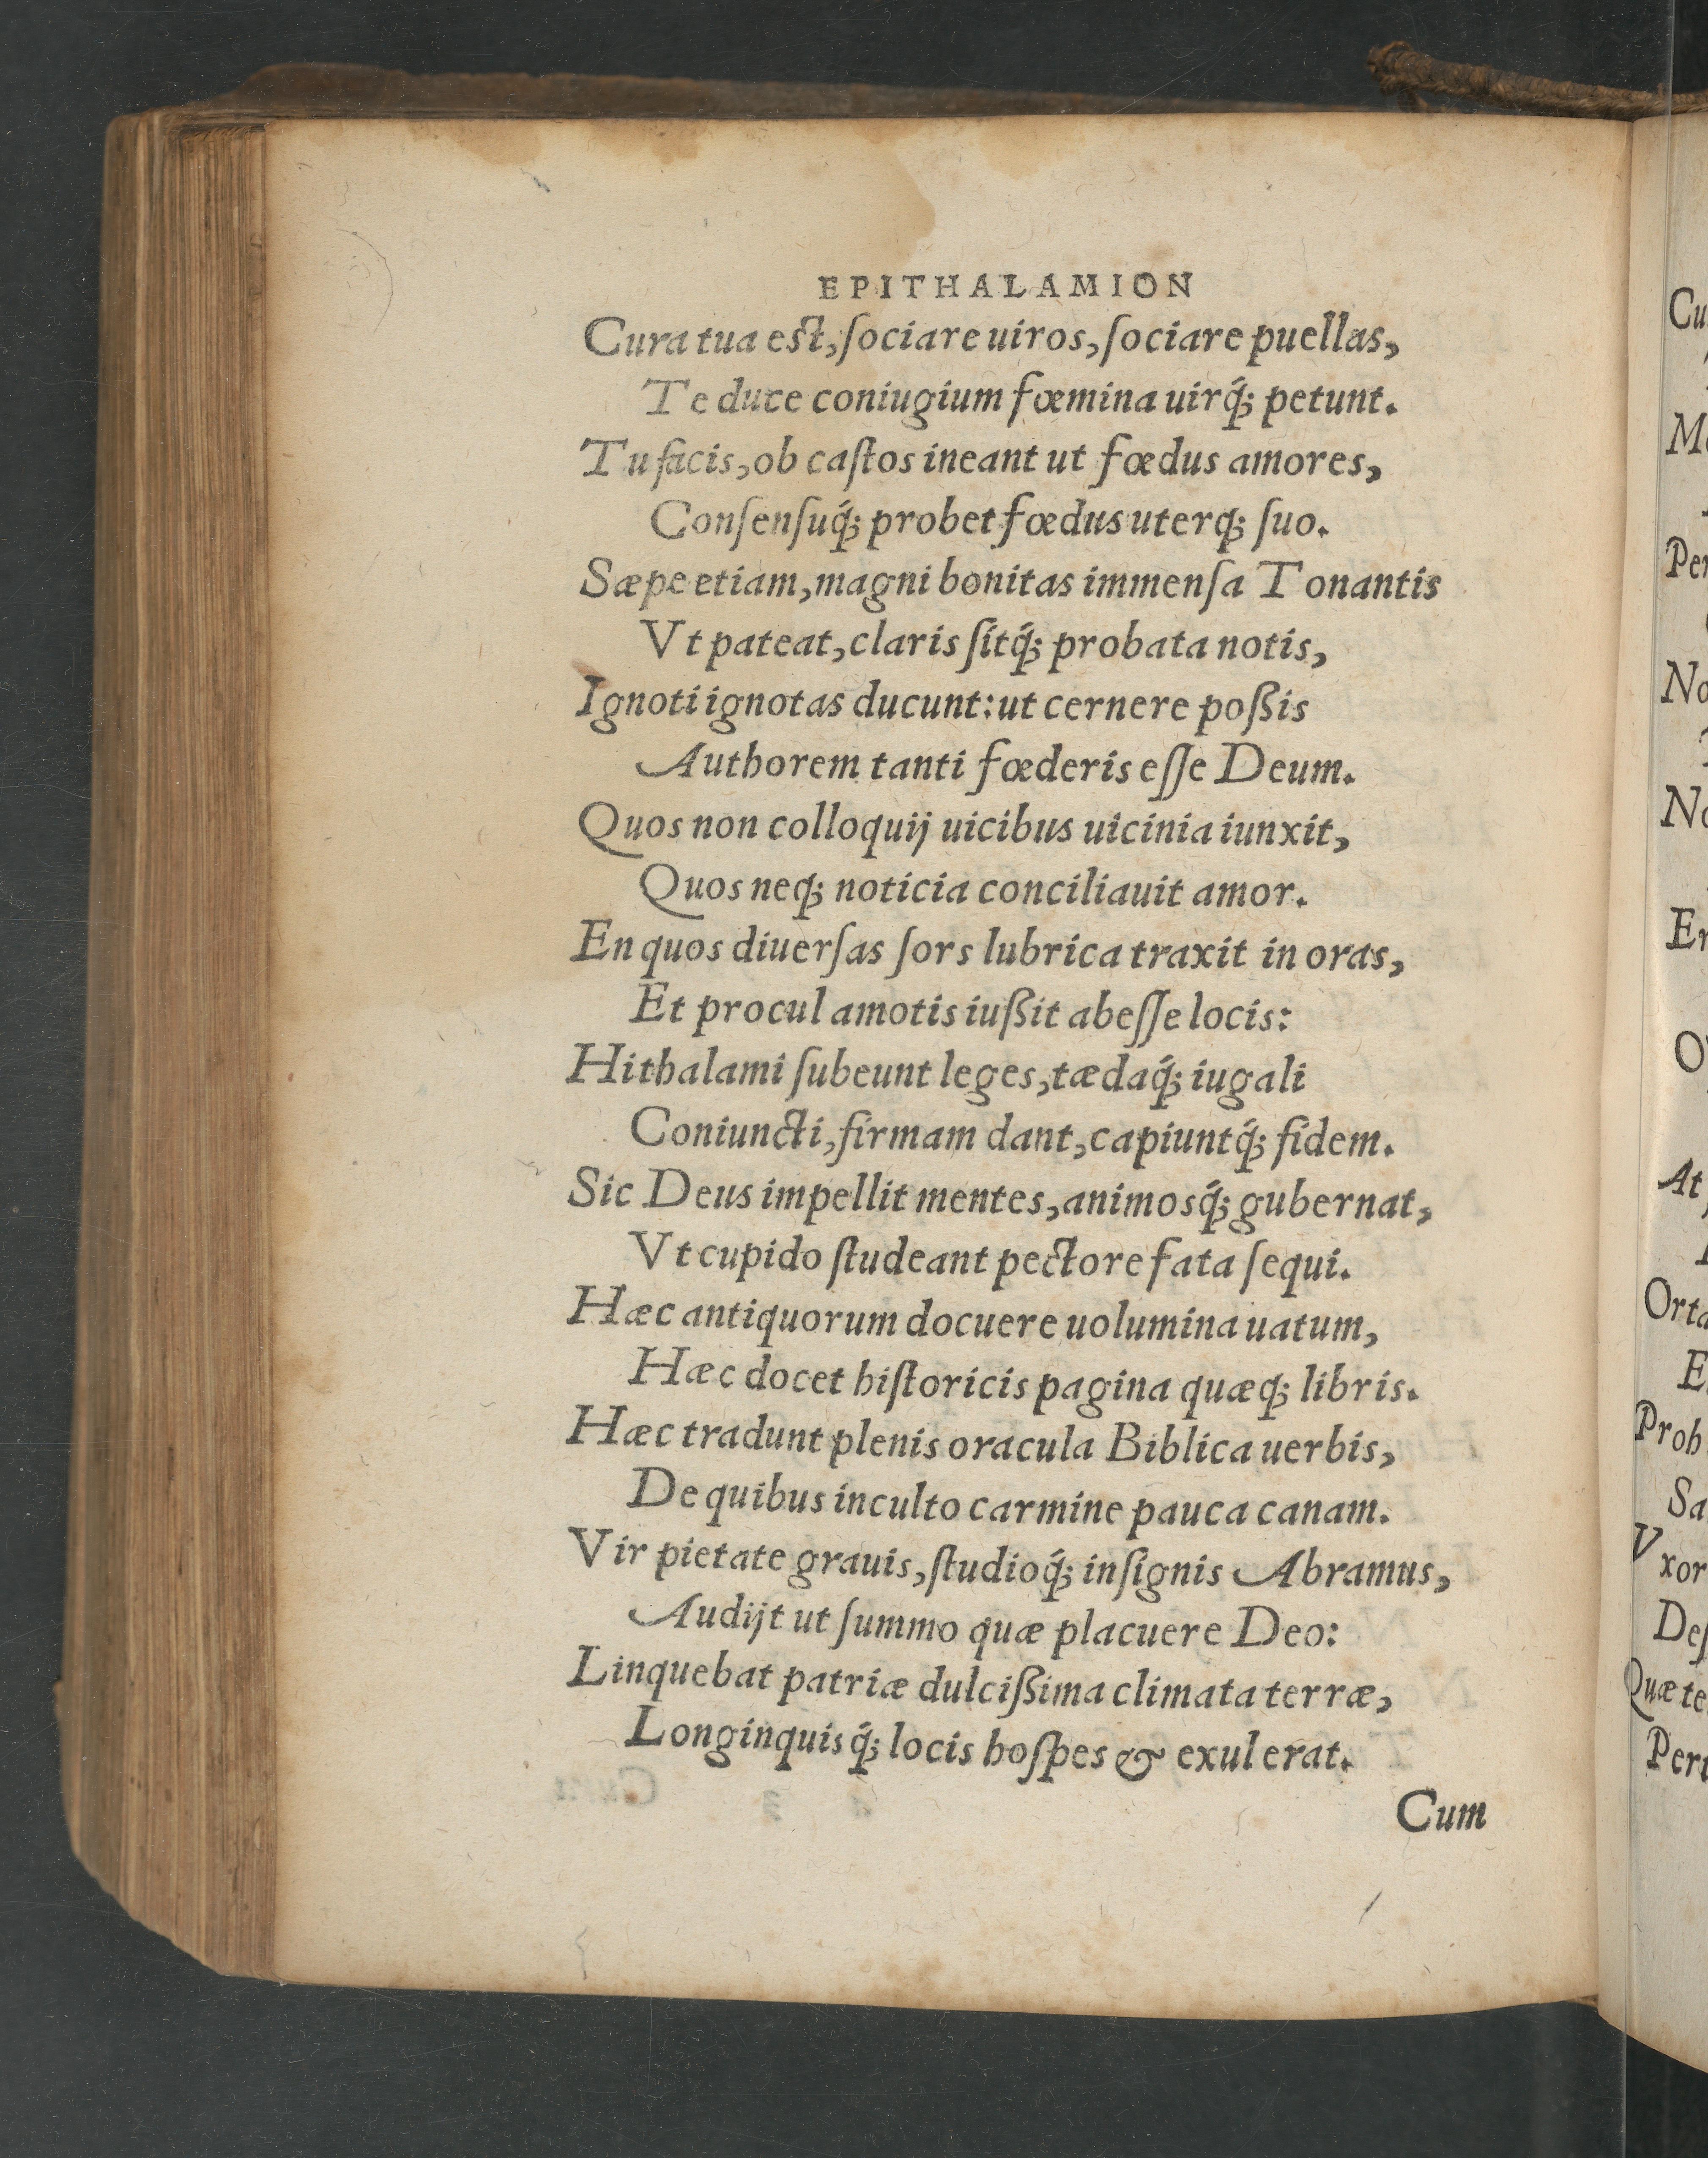 EPITHALAMION
Cura tua est, ſociare uiros, ſociare puellas,
Te duce coniugium fœmina uirq́ꝫ petunt.
Tu facis, ob caſtos ineant ut fœdus amores,
Conſenſuq́ꝫ probet fœdus uterqꝫ ſuo.
Sæpe etiam, magni bonitas immenſa Tonantis
Vt pateat, claris ſitq́ꝫ probata notis,
Ignoti ignotas ducunt: ut cernere poßis
Authorem tanti fœderis eſſe Deum.
Quos non colloquij uicibus uicinia iunxit,
Quos neqꝫ noticia conciliauit amor.
En quos diuerſas ſors lubrica traxit in oras,
Et procul amotis iußit abeſſe locis:
Hi thalami ſubeunt leges, tædaq́ꝫ iugali
Coniuncti, firmam dant, capiuntq́ꝫ fidem.
Sic Deus impellit mentes, animosq́ꝫ gubernat,
Vt cupido ſtudeant pectore fata ſequi.
Hæc antiquorum docuere uolumina uatum,
Hæc docet hiſtoricis pagina quæqꝫ libris.
Hæc tradunt plenis oracula Biblica uerbis,
De quibus inculto carmine pauca canam.
Vir pietate grauis, ſtudioq́ꝫ inſignis Abramus,
Audijt ut ſummo quæ placuere Deo:
Linquebat patriæ dulcißima climata terræ,
Longinquisq́ꝫ locis hoſpes & exul erat.
Cum
Cu
Per
No
No
En
At
Orta
E
Prob
Sa
Vxor
Deſ
Quæ te
Pert